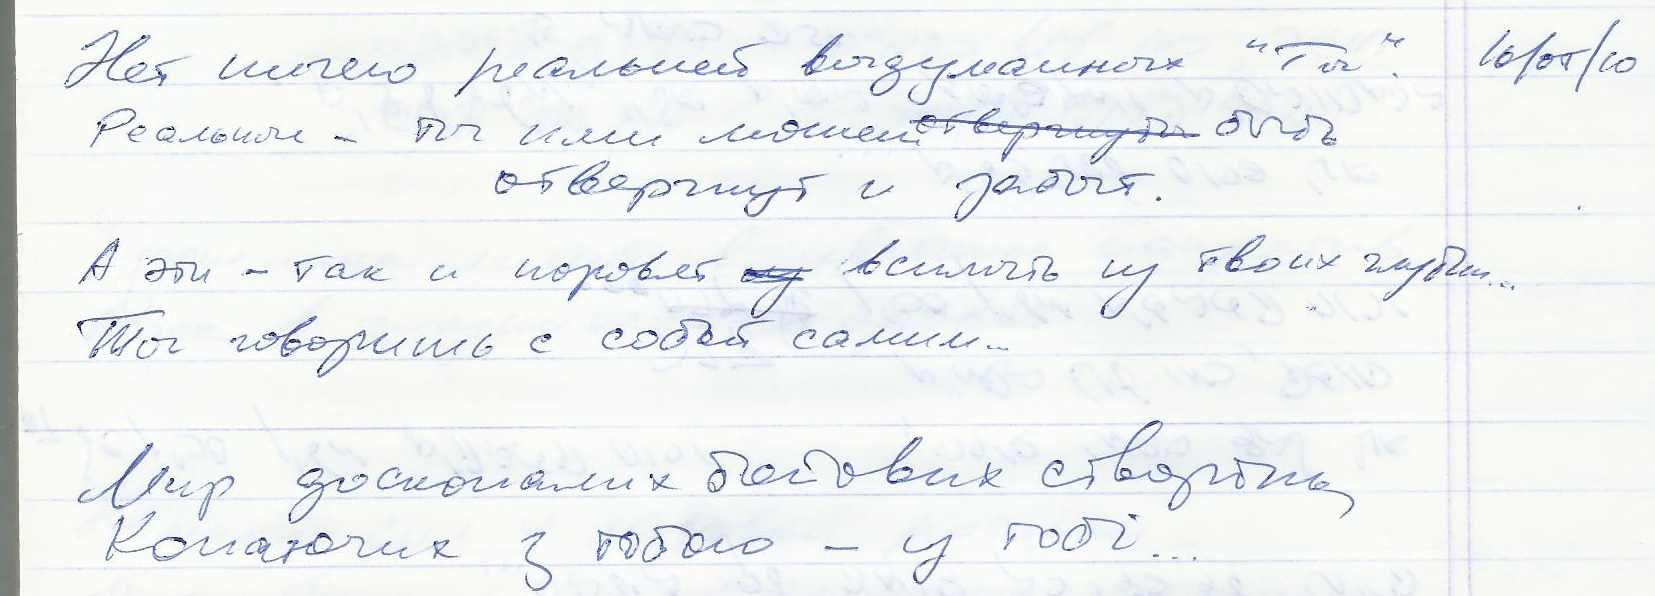 Нет ничего реальней выдуманных "Ты". 10/07/10
Реальные - ты или может отвергнуты быть
отвергнут и забыт.
А эти - так и норовят из всплыть из твоих глубин...
Ты говоришь с собой самим...
Мир досконалих створінь,
Копаючих з тобою - у тобі...